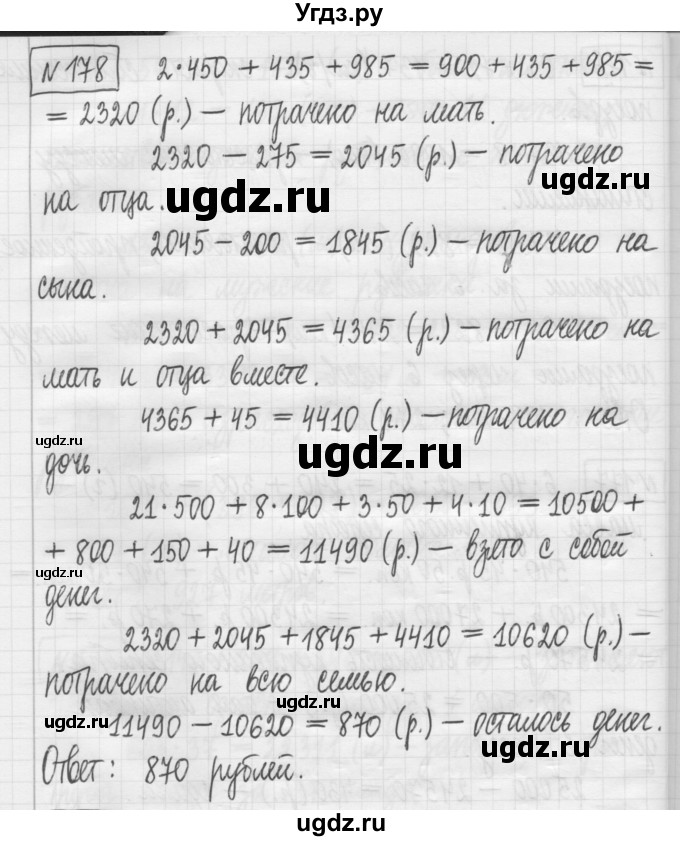 Угдз.ру
№178 2·450 + 435 + 985 = 900 + 435 + 985 =
= 2320 (р.) — потрачено на мать.
2320 — 275 = 2045 (р.) — потрачено
ugdz.ru
на отца.
ugdz.ru
2045 — 200 = 1845 (р.) — потрачено на
сына.
2320 + 2045 = 4365 (р.) — потрачено на
мать и отца вместе.
4365 + 45 = 4410 (р.) — потрачено на
ugdz.ru
ugdz.ru
дочь.
21·500 + 8·100 + 3·50 + 4·10 = 10500 +
+ 800 + 150 + 40 = 11490 (р.) — взято с собой
ugdz.ru
денег.
2320 + 2045 + 1845 + 4410 = 10620 (р.) —
потрачено на всю семью.
ugdz.ru
11490 — 10620 = 870 (р.) — осталось денег.
ugdz.ru
Ответ: 870 рублей.
ugdz.ru